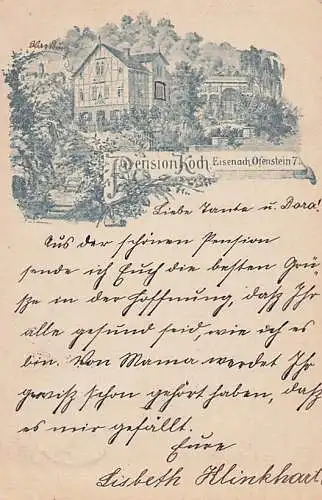 Pension Koch Eisenach, Ofenstein 7.
Liebe Tante u. Dora!
Aus der schönen Pension
sende ich Euch die besten Grü-
ße in der Hoffnung, daß Ihr
alle gesund seid, wie ich es
bin. Von Mama werdet Ihr
gewiß schon gehört haben, daß
es mir gefällt.
Eure
Lisbeth Klinkhart.